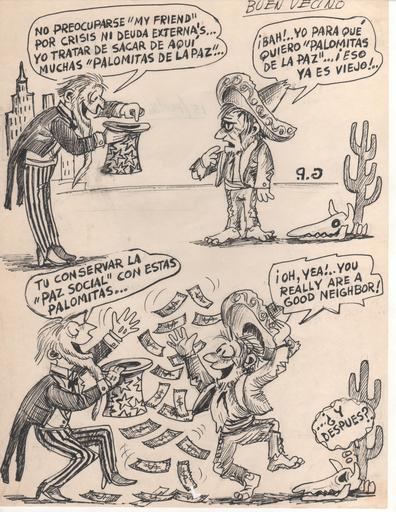 BUEN VECINO
NO PREOCUPARSE "MY FRIEND"
POR CRISIS NI DEUDA EXTERNA,S...
YO TRATAR DE SACAR DE AQUÍ
MUCHAS "PALOMITAS DE LA PAZ"...
¡BAH!..YO PARA QUÉ
QUIERO "PALOMITAS
DE LA PAZ"...¡ESO
YA ES VIEJO!...
G.P
TU CONSERVAR LA
"PAZ SOCIAL" CON ESTAS
PALOMITAS...
¡OH, YEA!..YOU
REALLY ARE A
GOOD NEIGHBOR!
...¿Y
DESPUES?